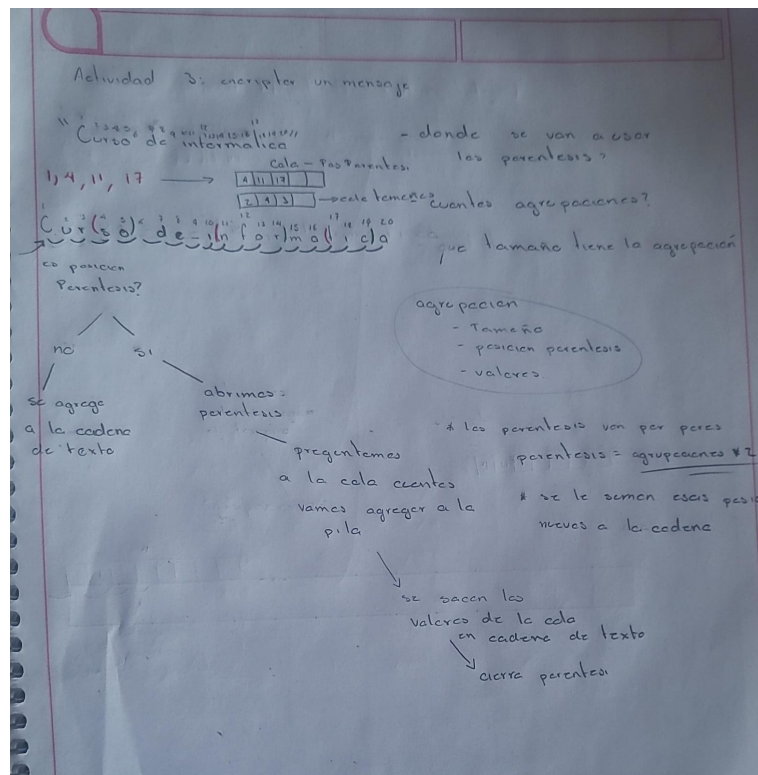 Actividad 3: encripter un mensaje
"Curso de informatica"
- donde se van a usar
los parentesis?
Cola - Pos Parentes.
1, 4, 11, 17
4 11 17
2 4 3
cuentas agrupaciones?
Cur(so) de-i(nfor)ma(tic)a
que tamaño tiene la agrupación
es posicion
Parentesis?
no
si
se agrega
a la cadena
de texto
abrimos
parentesis
agrupacion
- Tamaño
- posicion parentesis
- valores
preguntemos
a la cola cuentos
vamos agregar a la
pila
* los parentesis van por pares
parentesis = agrupaciones * 2
* se le suman esas
nuevas a la cadena
se sacan los
valores de la cola
en cadena de texto
cierra parentesi